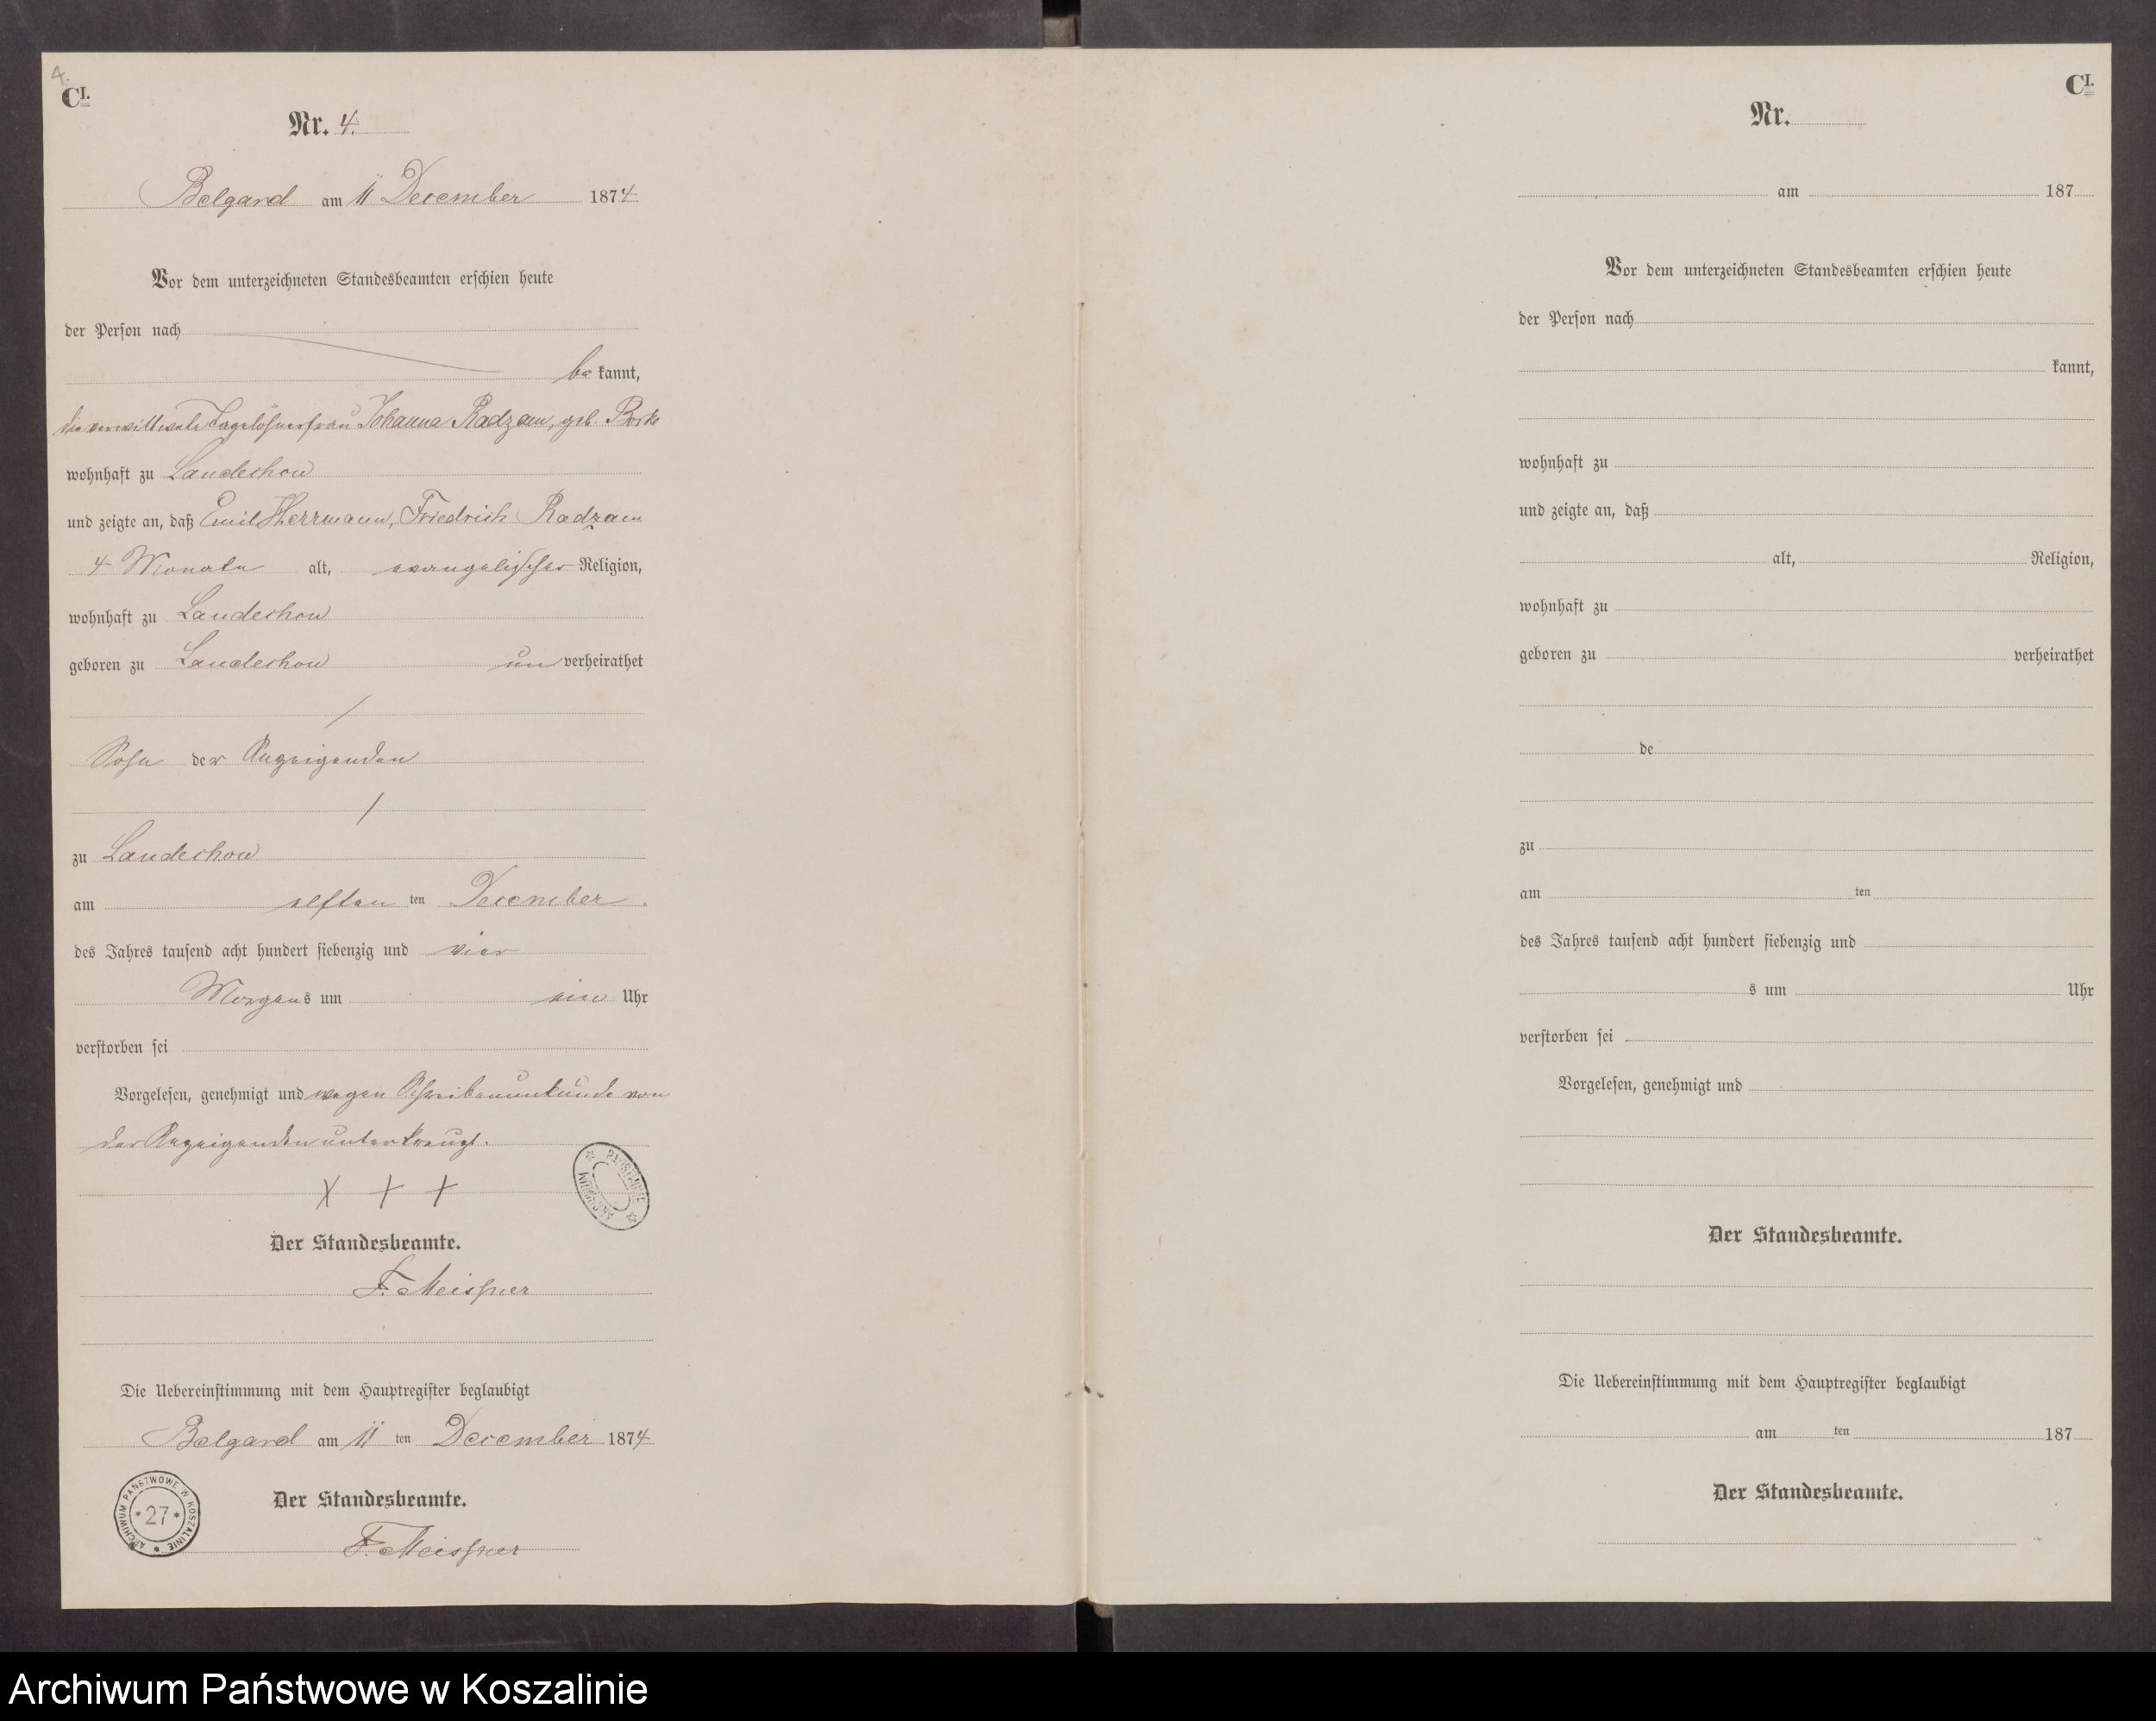 4.
C I.
Nr. 4.
Belgard am 11 December 1874
Vor dem unterzeichneten Standesbeamten erschien heute
der Person nach
be kannt,
die verwittwete Tagelöhnerfrau Johanna Radzam, geb.
wohnhaft zu Landechow
und zeigte an, daß Emil Herrmann, Friedrich Radzam
4 Monate alt, evangelischer Religion,
wohnhaft zu Landechow
geboren zu Landechow un verheirathet
Sohn der Anzeigenden
zu Landechow
am elften ten December
des Jahres tausend acht hundert siebenzig und vier
Morgens um ein Uhr
verstorben sei
Vorgelesen, genehmigt und wegen Schreibenunkunde von
der Anzeigenden unterkreuzt.
X + +
Der Standesbeamte.
F. Meißner
Die Uebereinstimmung mit dem Hauptregister beglaubigt
Belgard am 11 ten December 1874
Der Standesbeamte.
F. Meißner
ARCHIWUM PAŃSTWOWE W KOSZALINIE
* 27 *
C I.
Nr.
am 187
Vor dem unterzeichneten Standesbeamten erschien heute
der Person nach
kannt,
wohnhaft zu
und zeigte an, daß
alt, Religion,
wohnhaft zu
geboren zu verheirathet
de
zu
am ten
des Jahres tausend acht hundert siebenzig und
s um Uhr
verstorben sei
Vorgelesen, genehmigt und
Der Standesbeamte.
Die Uebereinstimmung mit dem Hauptregister beglaubigt
am ten 187
Der Standesbeamte.
Archiwum Państwowe w Koszalinie